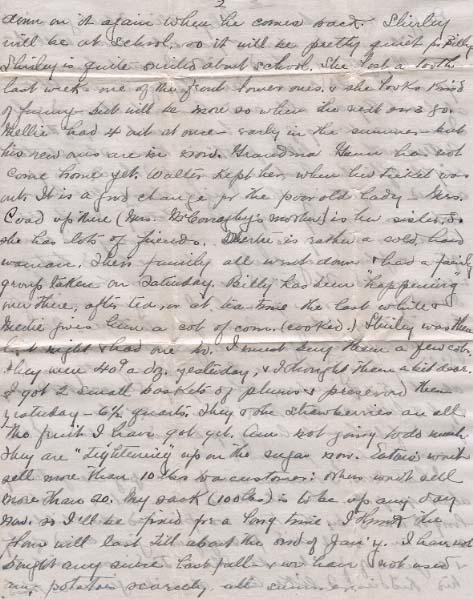 2
down on it again when he comes back. Shirley
will be at school, so it will be pretty quiet for Billy.
Shirley is quite excited about school. She lost a tooth
last week one of the front lower ones, & she looks kind
of funny but will be more so when the next one goes
Mellie had 4 out at once early in the summer but
his new ones are in now. Grandma has not
come home yet. Walter kept her when her ticket was
out. It is a good change for the poor old lady. Mrs.
Coad up there (Mrs. McConaghy's mother) is her sister, &
she has lots of friends. is rather a cold, hard
woman. family all went down & had a family
group taken on Saturday. Billy has been "happening"
over there, after tea or at tea time the last while &
gives him a cob of corn. (cooked.) Shirley was there
last night & had one too. I must buy them a few cobs.
They were 40¢ a dz. yesterday, & I thought them a bit dear.
I got 2 small baskets of plums & preserved them
yesterday – 6½ quarts. They & the strawberries are all
the fruit I have got yet. Am not going to do much.
They are "tightening" up on the sugar now. Eatons won't
sell more than 10 lbs to a customer: others won't sell
more than 20. My sack (100 lbs) is to be up any day
now. so I'll be fixed for a long time. I think the
flour will last till about the end of Jan'y. I have not
bought any since last fall & we have not used
any potatoes scarcely all summer